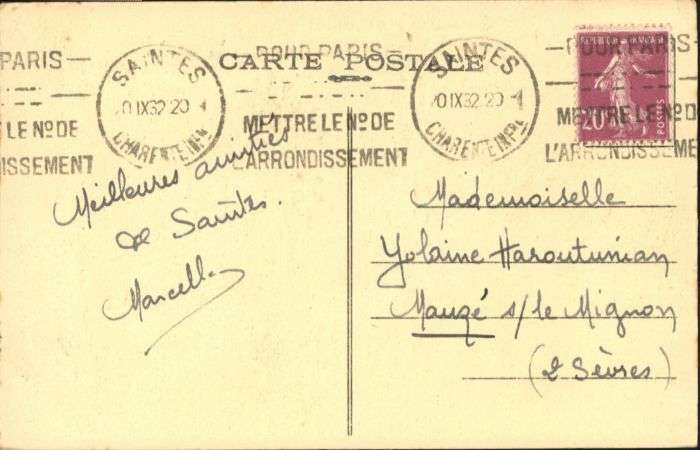 CARTE POSTALE
PARIS —
LE Nº DE
ISSEMENT
SAINTES
20
CHARENTE INFRE
— POUR PARIS —
METTRE LE Nº DE
L'ARRONDISSEMENT
SAINTES
20
CHARENTE INFRE
— POUR PARIS
METTRE LE Nº D
L'ARRONDISSEME
REPUBLIQUE FRANÇAISE
20
POSTES
Meilleures amitiés
de Saintes.
Marcelle
Mademoiselle
Yolaine Haroutunian
Mauzé s/le Mignon
(2 Sèvres)